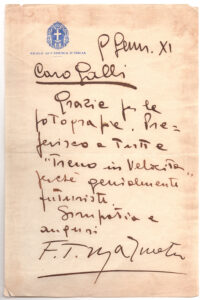 REALE ACCADEMIA D'ITALIA
9 Genn. XI
Caro Galli
Grazie per le
fotografie. Pre-
ferisco a tutte
"Treno in Velocità"
perché genialmente
futurista.
Simpatia e
auguri
F. T. Marinetti